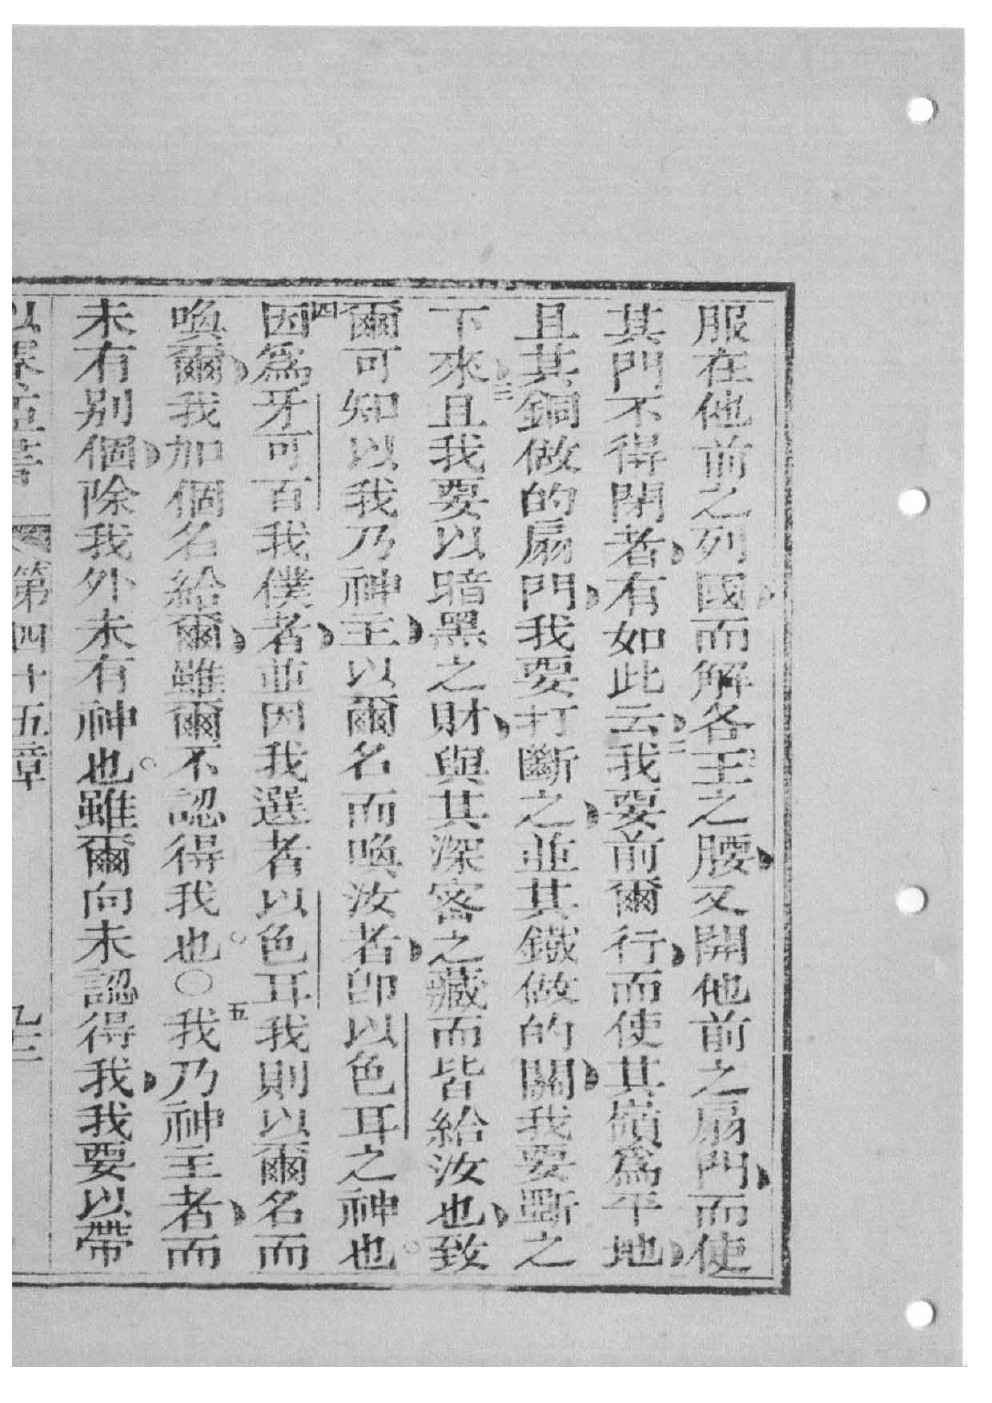 服在他前之列國、而解各王之腰、又開他前之扇門、而使
其門不得閉者、有如此云、二我要前爾行、而使其嶺爲平地、
且其銅做的扇門、我要打斷之、並其鐵做的關、我要斷之
下來、三且我要以暗黑之財、與其深密之藏而皆給汝也、致
爾可知以我乃神主、以爾名而喚汝者、卽以色耳之神也。
四因爲牙可百我僕者、並因我選者以色耳我則以爾名而
喚爾、我加個名給爾、雖爾不認得我也。〇五我乃神主者、而
未有別個、除我外未有神也。雖爾向未認得我、我要以帶
第四十五章 九二